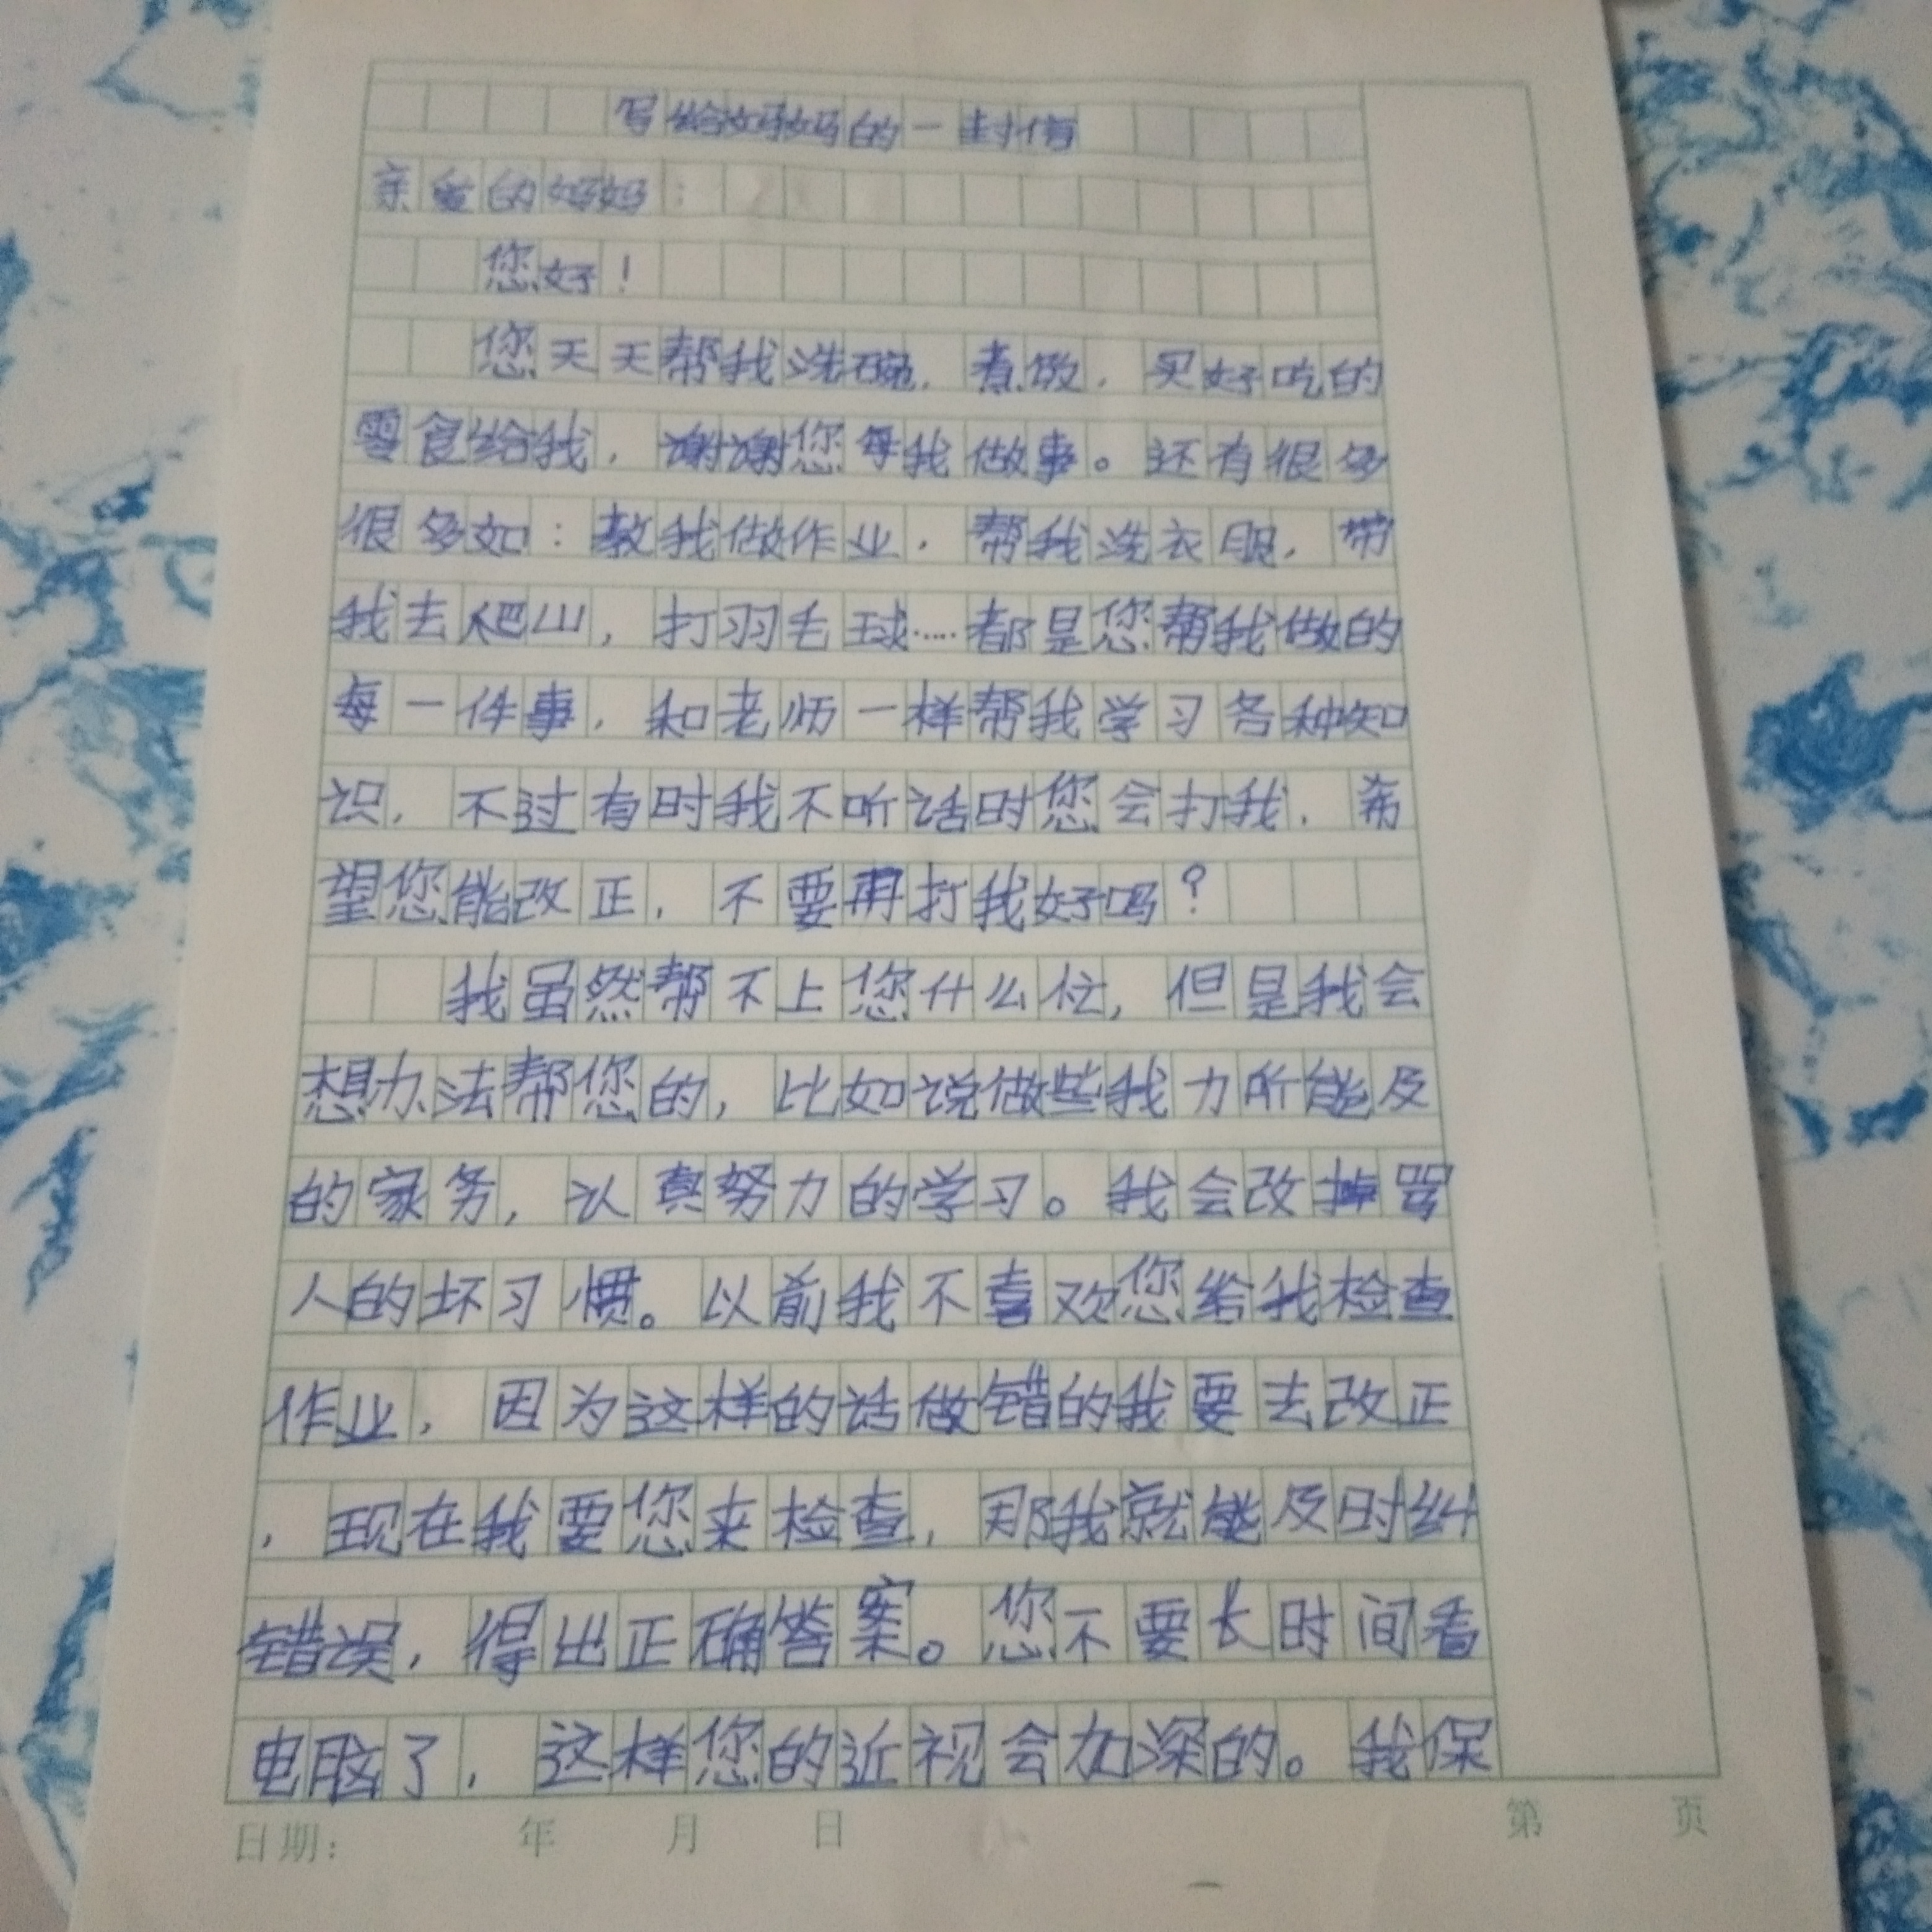 写给妈妈的一封信
亲爱的妈妈：
您好！
您天天帮我洗碗，煮饭，买好吃的
零食给我，谢谢您每我做事。还有很多
很多如：教我做作业，帮我洗衣服，带
我去爬山，打羽毛球……都是您帮我做的
每一件事，和老师一样帮我学习各种知
识，不过有时我不听话时您会打我，希
望您能改正，不要再打我好吗？
我虽然帮不上您什么忙，但是我会
想办法帮您的，比如说做些我力所能及
的家务，认真努力的学习。我会改掉骂
人的坏习惯。以前我不喜欢您给我检查
作业，因为这样的话做错的我要去改正
，现在我要您来检查，那我就能及时纠
错误，得出正确答案。您不要长时间看
电脑了，这样您的近视会加深的。我保
日期： 年 月 日 第 页